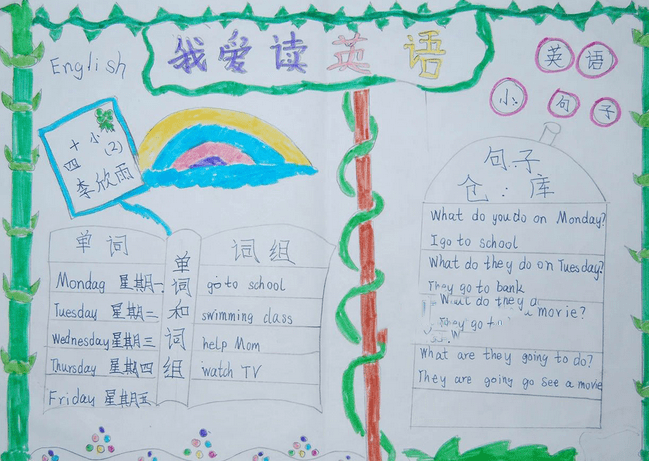 我爱读英语
English
英语
小句子
十小
四(2)
李欣雨
单词
Mondag 星期一
Tuesday 星期二
Wednesday 星期三
Thursday 星期四
Friday 星期五
单词和词组
词组
go to school
swimming class
help Mom
watch TV
句子
仓:库
What do you do on Monday?
I go to school
What do they do on Tuesday?
They go to bank
What do they
a movie?
They go to
What are they going to do?
They are going go see a movie